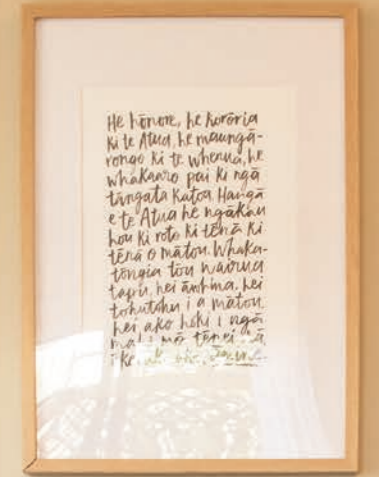 He hōnore, he korōria
ki te Atua, he maungā-
rongo ki te whenua, he
whakaaro pai ki ngā
tāngata katoa Hangā
e te Atua he ngākau
hou ki roto ki tēnā ki
tēnā o mātou. Whaka-
tōngia tōu wairua
tapu, hei āwhina, hei
tohutohu i a mātou.
hei ako hoki i ngā
mahi mō tēnei rā
i ko